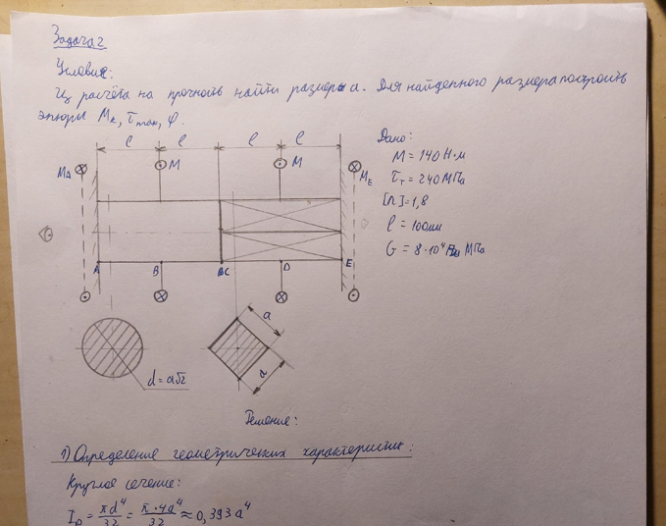 Задача 2
Условие:
Из расчёта на прочность найти размеры a. Для найденного размера построить
эпюры Mк, τmax, φ.
l l l l
M M
MA ME
A B C D E
d = a√2
a
a
Дано:
M = 140 Н·м
τт = 240 МПа
[n] = 1,8
l = 100мм
G = 8·10⁴ МПа
Решение:
1) Определение геометрических характеристик:
Круглое сечение:
Ip = πd⁴/32 = π·4a⁴/32 ≈ 0,393a⁴